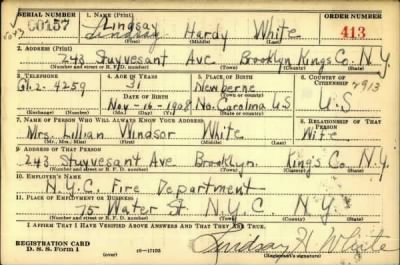 SERIAL NUMBER 1. NAME (Print) ORDER NUMBER
Lindsay
Lindsay Hardy White 413
(First) (Middle) (Last)
2. ADDRESS (Print)
243 Stuyvesant Ave Brooklyn Kings Co. N.Y.
(Number and street or R. F. D. number) (Town) (County) (State)
3. TELEPHONE 4. AGE IN YEARS 5. PLACE OF BIRTH 6. COUNTRY OF CITIZENSHIP
31 Newberne
Gl. 2-4259 DATE OF BIRTH (Town or county)
Nov-16-1908 No. Carolina US U.S
(Exchange) (Number) (Mo.) (Day) (Yr.) (State or country)
7. NAME OF PERSON WHO WILL ALWAYS KNOW YOUR ADDRESS 8. RELATIONSHIP OF THAT PERSON
Mrs. Lillian Windsor White Wife
(Mr., Mrs., Miss) (First) (Middle) (Last)
9. ADDRESS OF THAT PERSON
243 Stuyvesant Ave Brooklyn. Kings Co. N.Y.
(Number and street or R. F. D. number) (Town) (County) (State)
10. EMPLOYER'S NAME
N.Y.C. Fire Department
11. PLACE OF EMPLOYMENT OR BUSINESS
75 Water St N.Y.C. N.Y.
(Number and street or R. F. D. number) (Town) (County) (State)
I AFFIRM THAT I HAVE VERIFIED ABOVE ANSWERS AND THAT THEY ARE TRUE.
REGISTRATION CARD
D. S. S. Form 1 16-17105 Lindsay H White
(Registrant's signature)